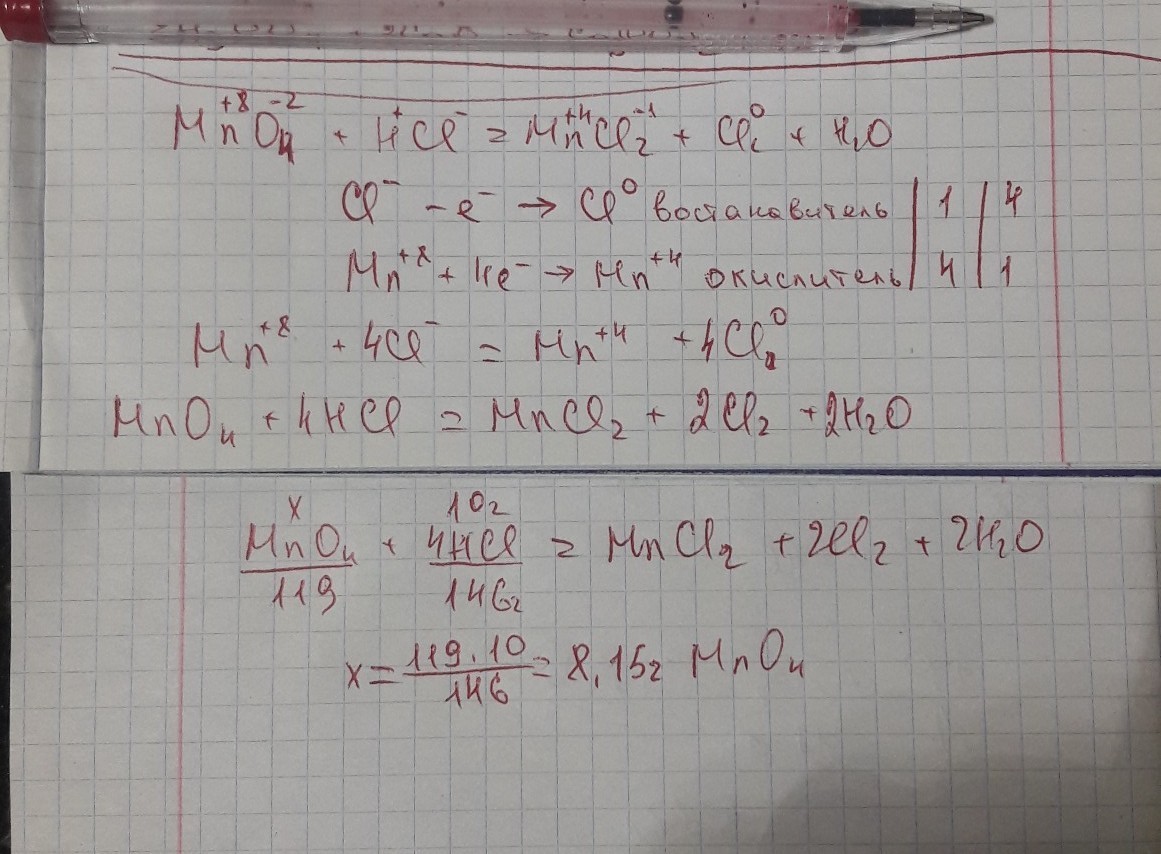 Mn⁺⁸O₄⁻² + H⁺Cl⁻ = Mn⁺⁴Cl₂⁻¹ + Cl₂⁰ + H₂O
Cl⁻ - e⁻ → Cl⁰ востановитель | 1 | 4
Mn⁺⁸ + 4e⁻ → Mn⁺⁴ окислитель | 4 | 1
Mn⁺⁸ + 4Cl⁻ = Mn⁺⁴ + 4Cl₂⁰
MnO₄ + 4HCl = MnCl₂ + 2Cl₂ + 2H₂O
x 10г
MnO₄ + 4HCl = MnCl₂ + 2Cl₂ + 2H₂O
119 146г
x = 119·10/146 = 8,15г MnO₄